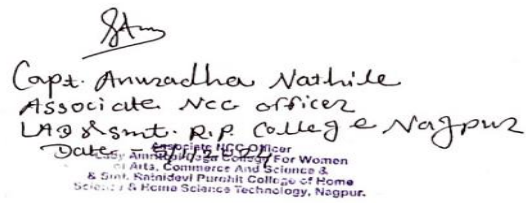 Capt. Anuradha Nathile
Associate NCC officer
LAD & Smt. R.P. College Nagpur
Date -
Associate NCC Officer
Lady Amritbai Daga College For Women
of Arts, Commerce And Science &
& Smt. Ratnidevi Purohit College of Home
Science & Home Science Technology, Nagpur.